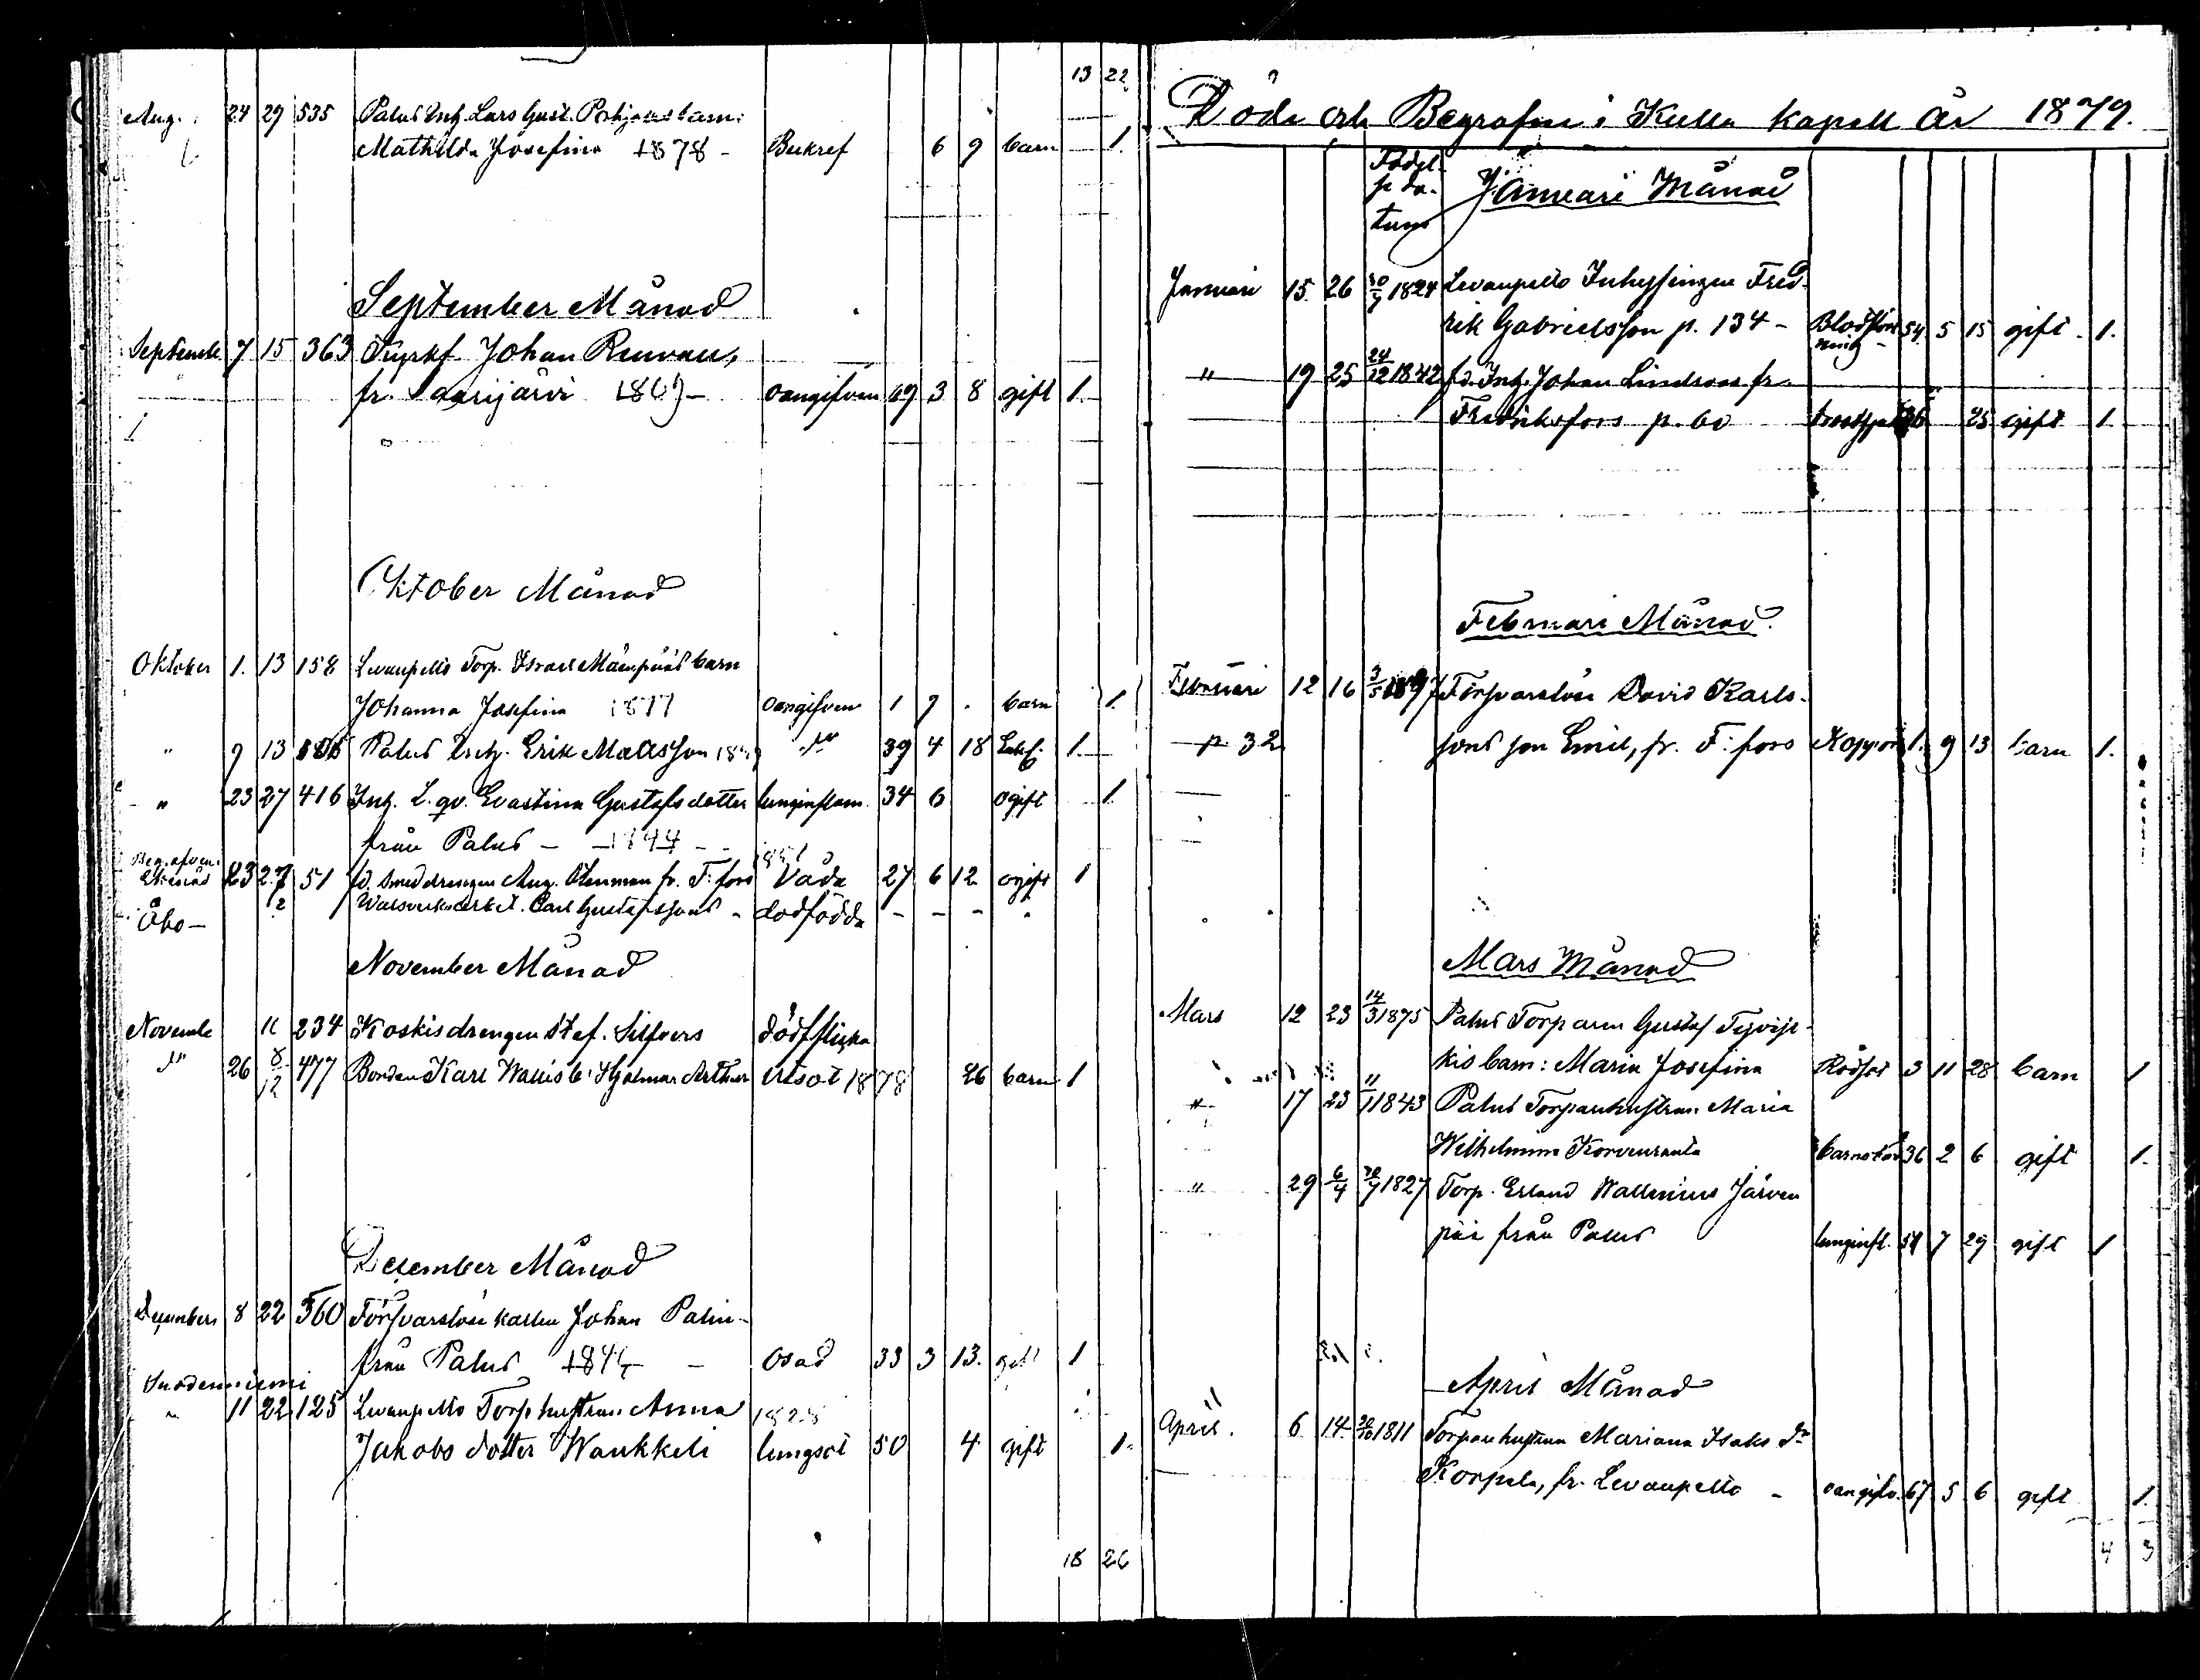 13 22
Aug. 24 29 535 Palus Inh. Lars Gust. Pohjolas barn:
Mathilda Josefina 1878 - Bukref 6 9 barn 1.
September Månad
Septemb. 7 15 363 Kyrkf. Johan
fr. Saarijärvi 180 - oangifven 69 3 8 gift 1
Oktober Månad
Oktober 1. 13 158 Levanpelto Torp. Israel Mäenpääs barn
Johanna Josefina 1877 oangifven 1 9 . barn 1.
" 9 13 Palus Inh. Erik Matsson 18 " 39 4 18 Enkl. 1.
" 23 27 416 Inh. L. qv. Evastina Gustafsdotter lunginflam. 34 6 ogift 1.
från Palus - 1844 - -
Begrafven i Ekenäs 23 27 51 fd. Smeddrengen Aug. Öhnman fr. F:fors Våda 27 6 12 ogift 1
Åbo - 2 Walsverksarbet. Carl Gustafssons - dödfödda - - - "
November Månad
Novemb 11 234 Koskis drengen Stef. Silfvers dödfflicka
" 26 8/12 477 Bonden Karl Wallis b: Hjalmar Arthur Utsot 1878 26 barn 1
December Månad
Decembers 8 22 560 Försvarslöse karlen Johan Palin
från Palus 184 - Osad 33 3 13. gift 1
Suodenniemi
" 11 22 125 Levanpelto Torp hustrun Anna 1828
Jakobs dotter Wankkeli lungsot 50 4 gift 1.
18 26
Döde och Begrafne i Kulla kapell År 1879.
Födel-
se da-
tum
Januari Månad
Januari 15 26 30/7 1824 Levanpelto Inhysingen Fred-
rik Gabrielsson p. 134 - Blodstörtning 54 5 15 gift. 1.
" 19 25 24/12 1842 fd. Inh. Johan Lindroos fr.
Fredriksfors p. 60 36 25 gift 1.
Februari Månad.
Februari 12 16 Försvarslöse David Karls-
p 32 sons son Emil, fr. F:fors Koppor 1. 9 13 barn 1.
Mars Månad
Mars 12 23 14/3 1875 Palus Torparen Gustaf
kis barn: Maria Josefina Rödsot 3 11 28 barn 1
" 17 23 11/1 1843 Palus Torparehustrun Maria
Wilhelmina Korvenranta barnsbörd 36 2 6 gift 1.
" 29 6/4 30/7 1827 Torp. Erland Wallenius Järven
pää från Palus lunginfl. 51 7 29 gift 1
April Månad
April. 6 14 30/10 1811 Torpare hustrun Mariana Isaks dr
Korpela, fr. Levanpelto - oangifv. 67 5 6 gift 1.
4 3